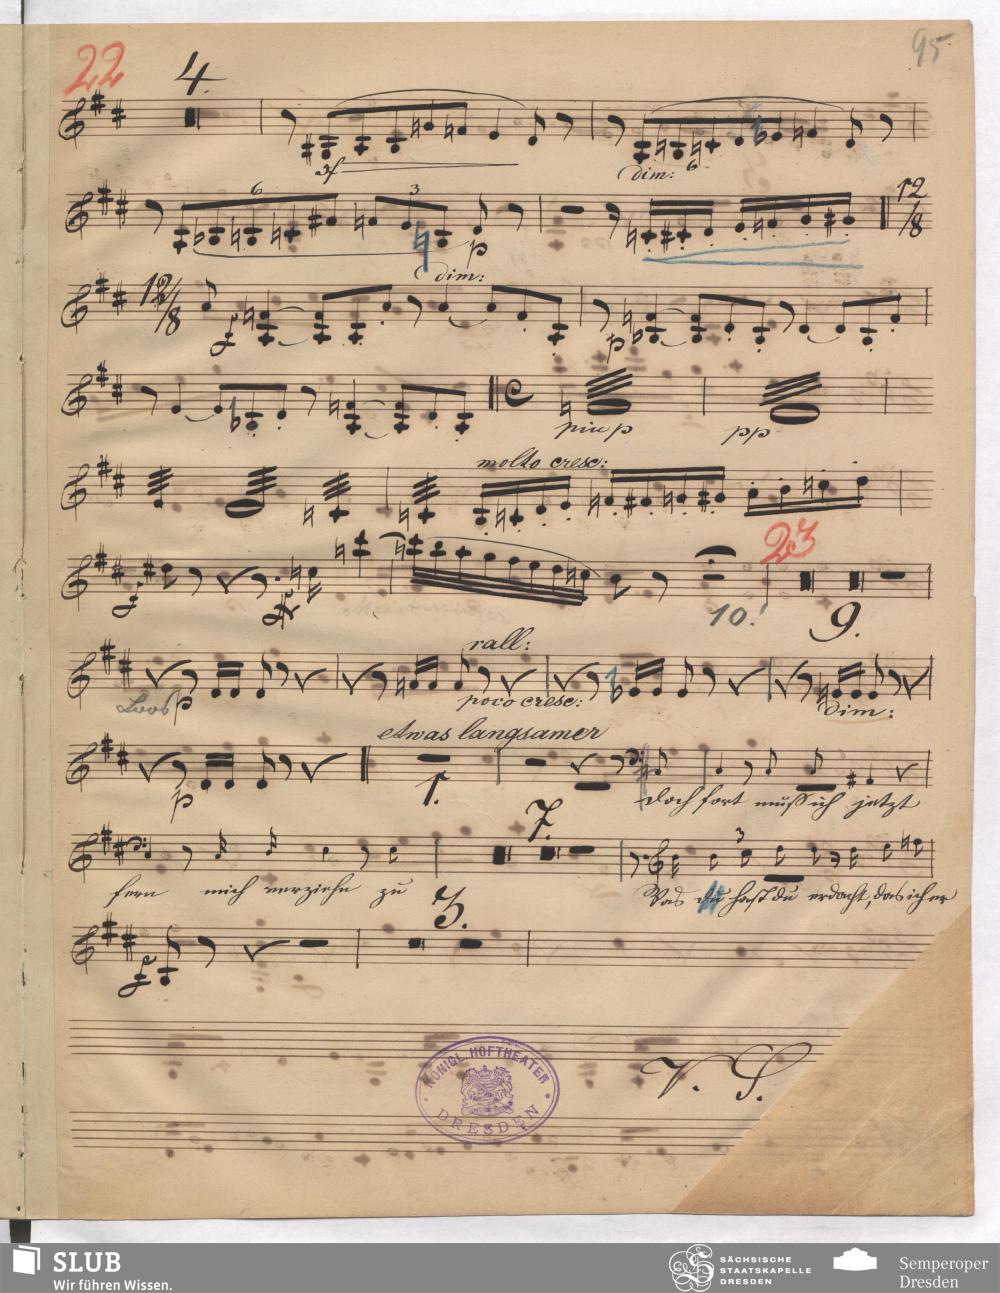 22 4. 95
sf dim: 6
6 3 p 12/8
dim:
12/8 f p
piu p pp
molto cresc:
23
f 10. 9.
rall:
p poco cresc: dim:
etwas langsamer
p 1. doch fort muß ich jetzt
7.
3
fern mich verziehn zu Was du hast du erdacht, das ich er
3.
f
V. S.
KÖNIGL. HOFTHEATER
DRESDEN
SLUB
Wir führen Wissen.
SÄCHSISCHE
STAATSKAPELLE
DRESDEN
Semperoper
Dresden